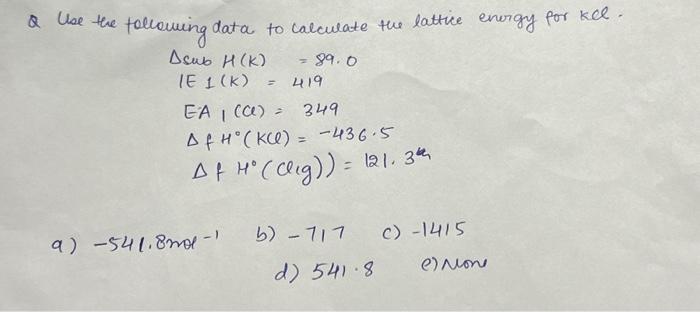 Q Use the following data to calculate the lattice energy for KCl.
Δsub H(K) = 89.0
IE 1 (K) = 419
EA 1 (Cl) = 349
Δf H°(KCl) = -436.5
Δf H°(Cl(g)) = 121.3
a) -541.8mol⁻¹ b) -717 c) -1415
d) 541.8 e) None